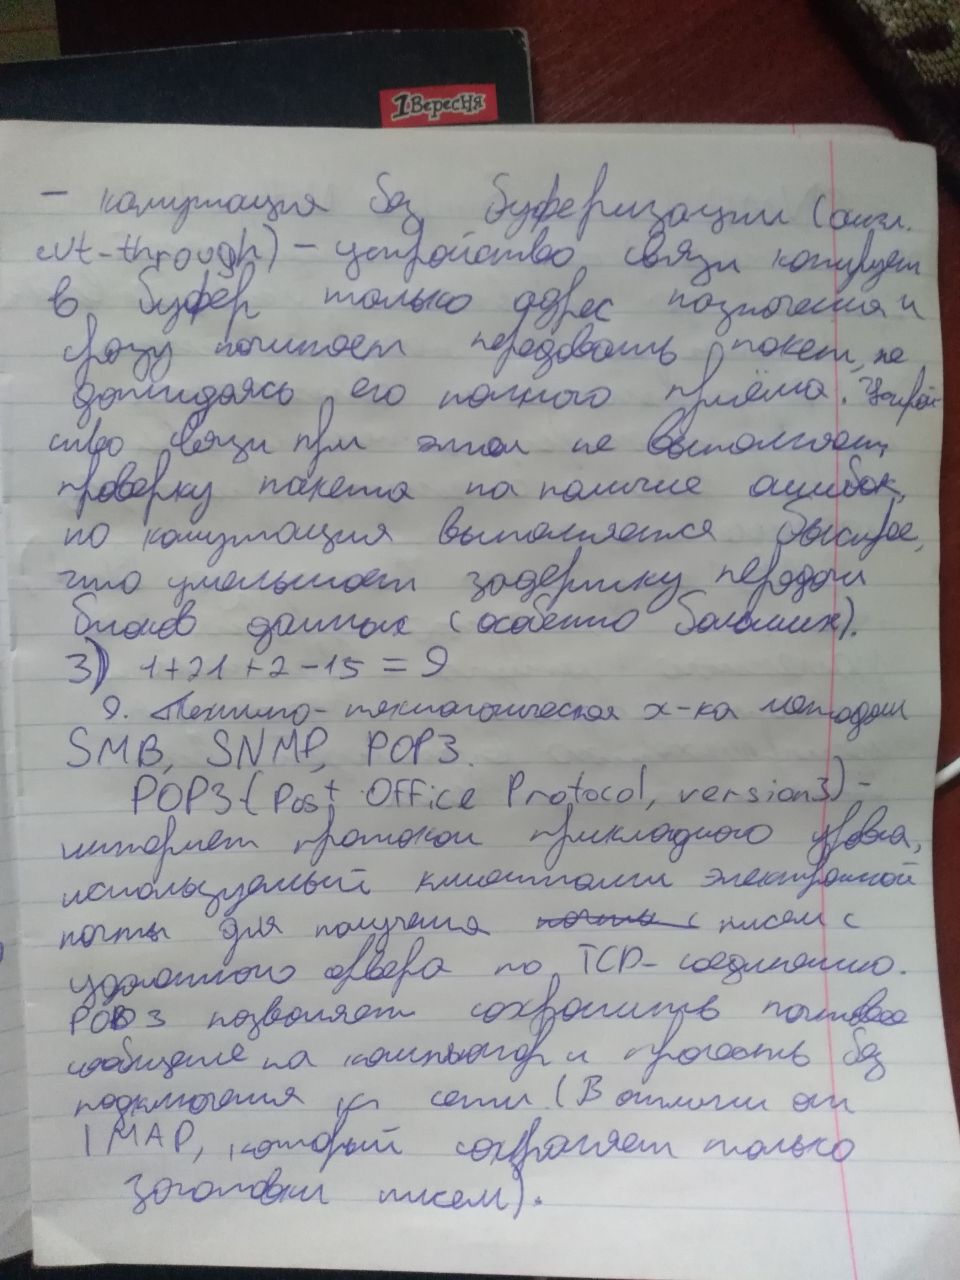 1 Вересня
– комутация без буферизации (англ.
cut-through) – устройство связи копирует
в буфер только адрес назначения и
сразу начинает передовать пакет, не
дожидаясь его полного приёма. Устрой
ство связи при этом не выполняет
проверку пакета на наличие ошибок,
но комутация выполняется быстрее,
что уменьшает задержку передачи
блоков данных (особенно больших).
3) 1+21+2-15=9
9. Технико-технологическая х-ка методам
SMB, SNMP, POP3.
POP3-(Post Office Protocol, version3)-
интернет протокол прикладного уровня,
используемый клиентами электронной
почты для получения почты с писем с
удаленного сервера по TCP-соединению.
POP3 позволяет сохранить почтовое
сообщение на компьютор и прочесть без
подключения к сети (В отличии от
IMAP, который сохраняет только
заголовки писем).